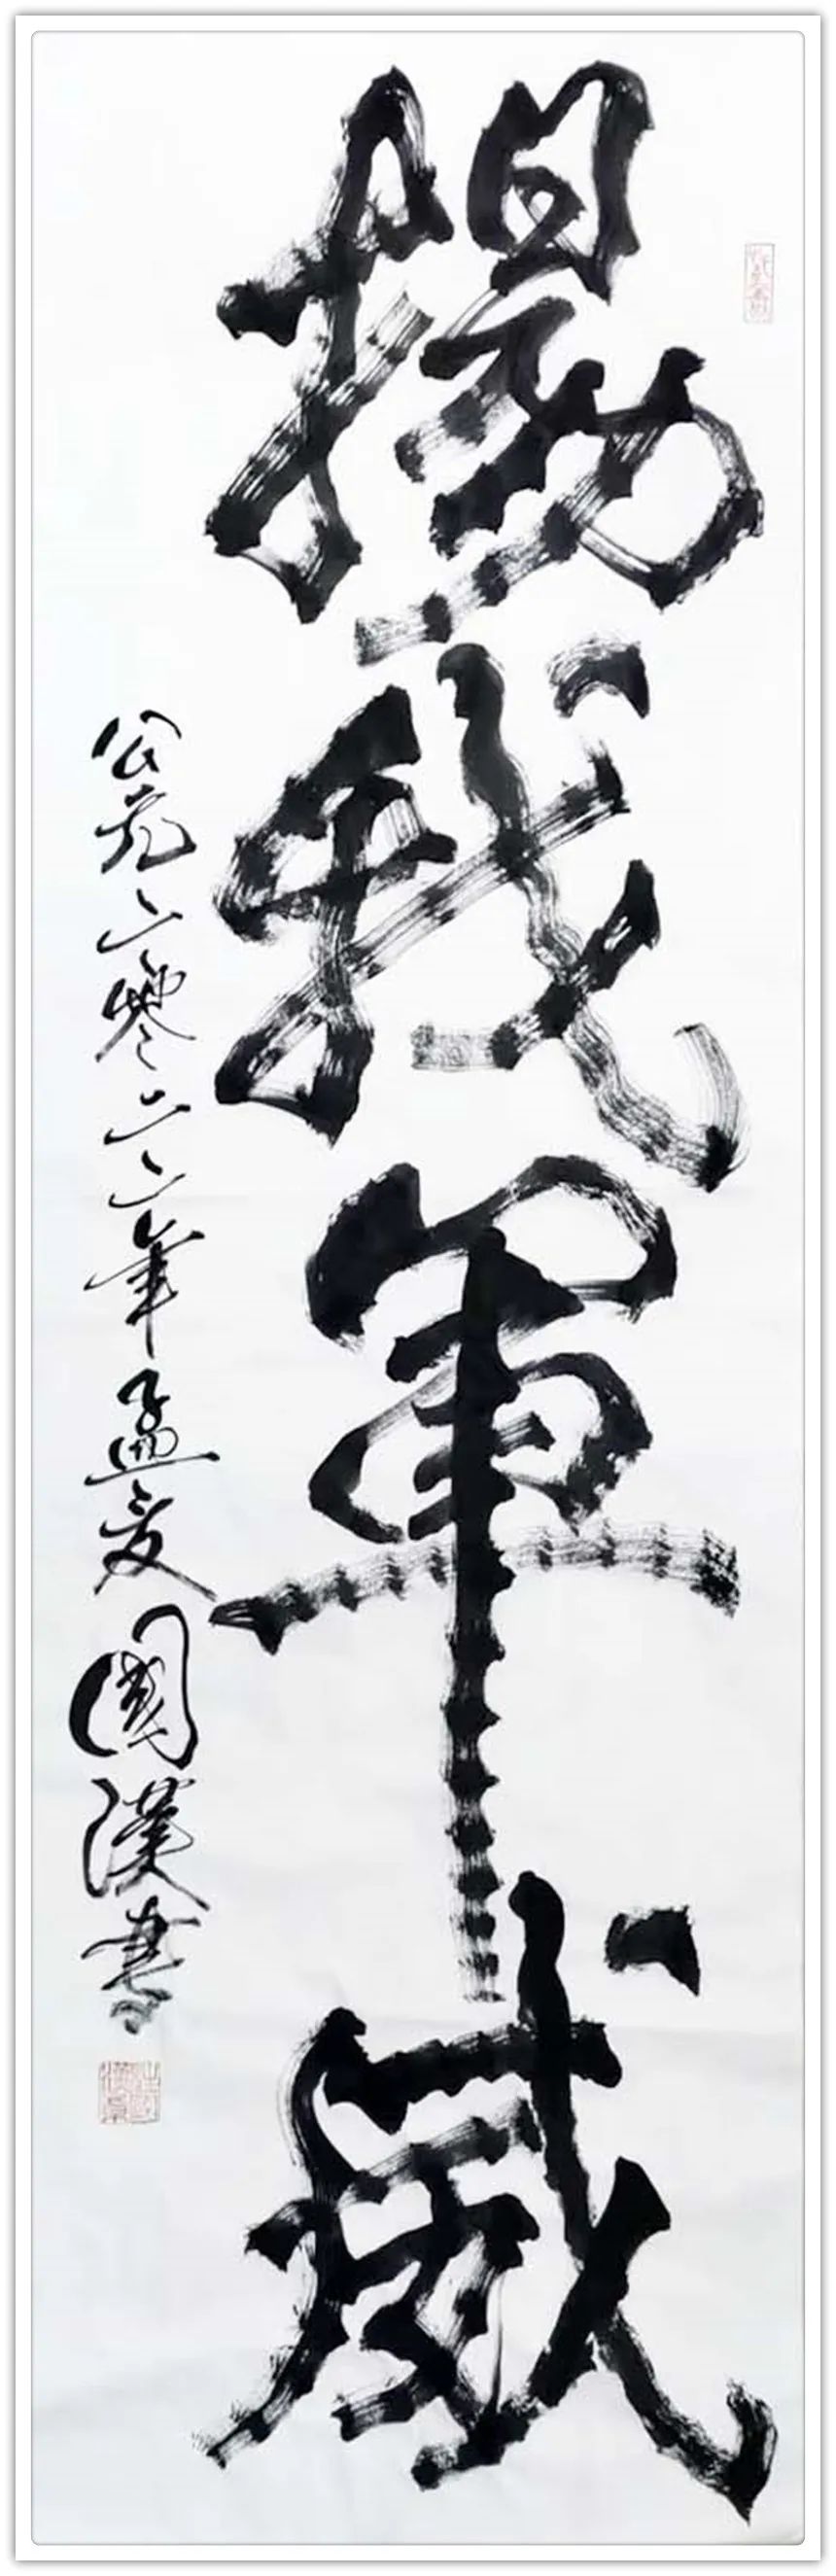 揚我軍威
公元二零二二年孟夏國漢書